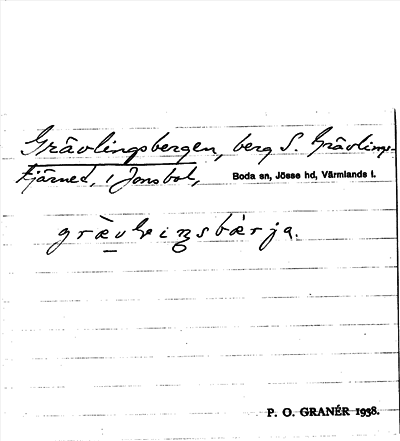 Grävlingsbergen, berg S. Grävlings-
tjärned, i Jonsbol, Boda sn, Jösse hd, Värmlands l.
grævliŋsbærja.
P. O. GRANÉR 1938.